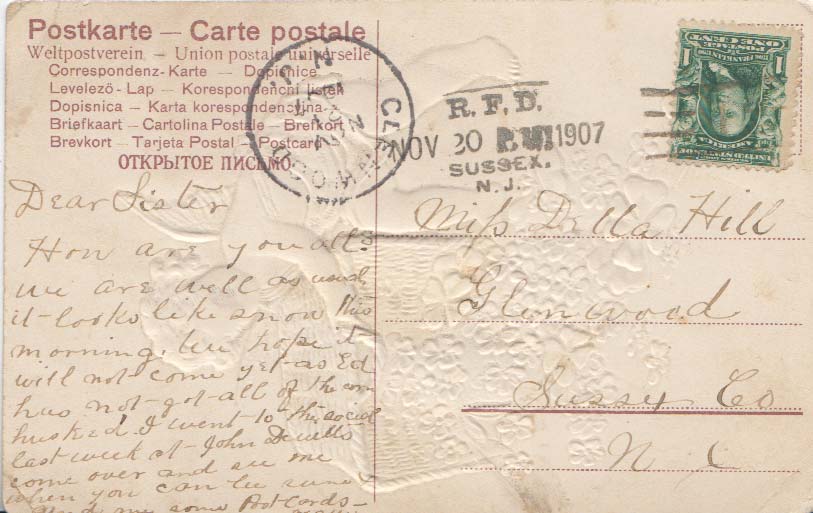 Postkarte — Carte postale
Weltpostverein — Union postale universelle
Correspondenz-Karte — Dopisnice
Levelezö-Lap — Korespondenční listek
Dopisnica — Karta korespondencyjna
Briefkaart — Cartolina Postale — Brefkort
Brevkort — Tarjeta Postal — Postcard
ОТКРЫТОЕ ПИСЬМО
GLENWOOD N.J.
NOV
R.F.D.
NOV 20 P.M. 1907
SUSSEX,
N. J.
ONE CENT
POSTAGE
1 1
FRANKLIN
UNITED STATES OF
AMERICA
Dear Sister
How are you all
we are well as usual
it looks like snow this
morning. We hope it
will not come yet as Ed
has not got all of the corn
husked. I went to the social
last week at John Dewitts
come over and see me
when you can be sure
and me some Post Cards
Miss Della Hill
Glenwood
Sussex Co
N